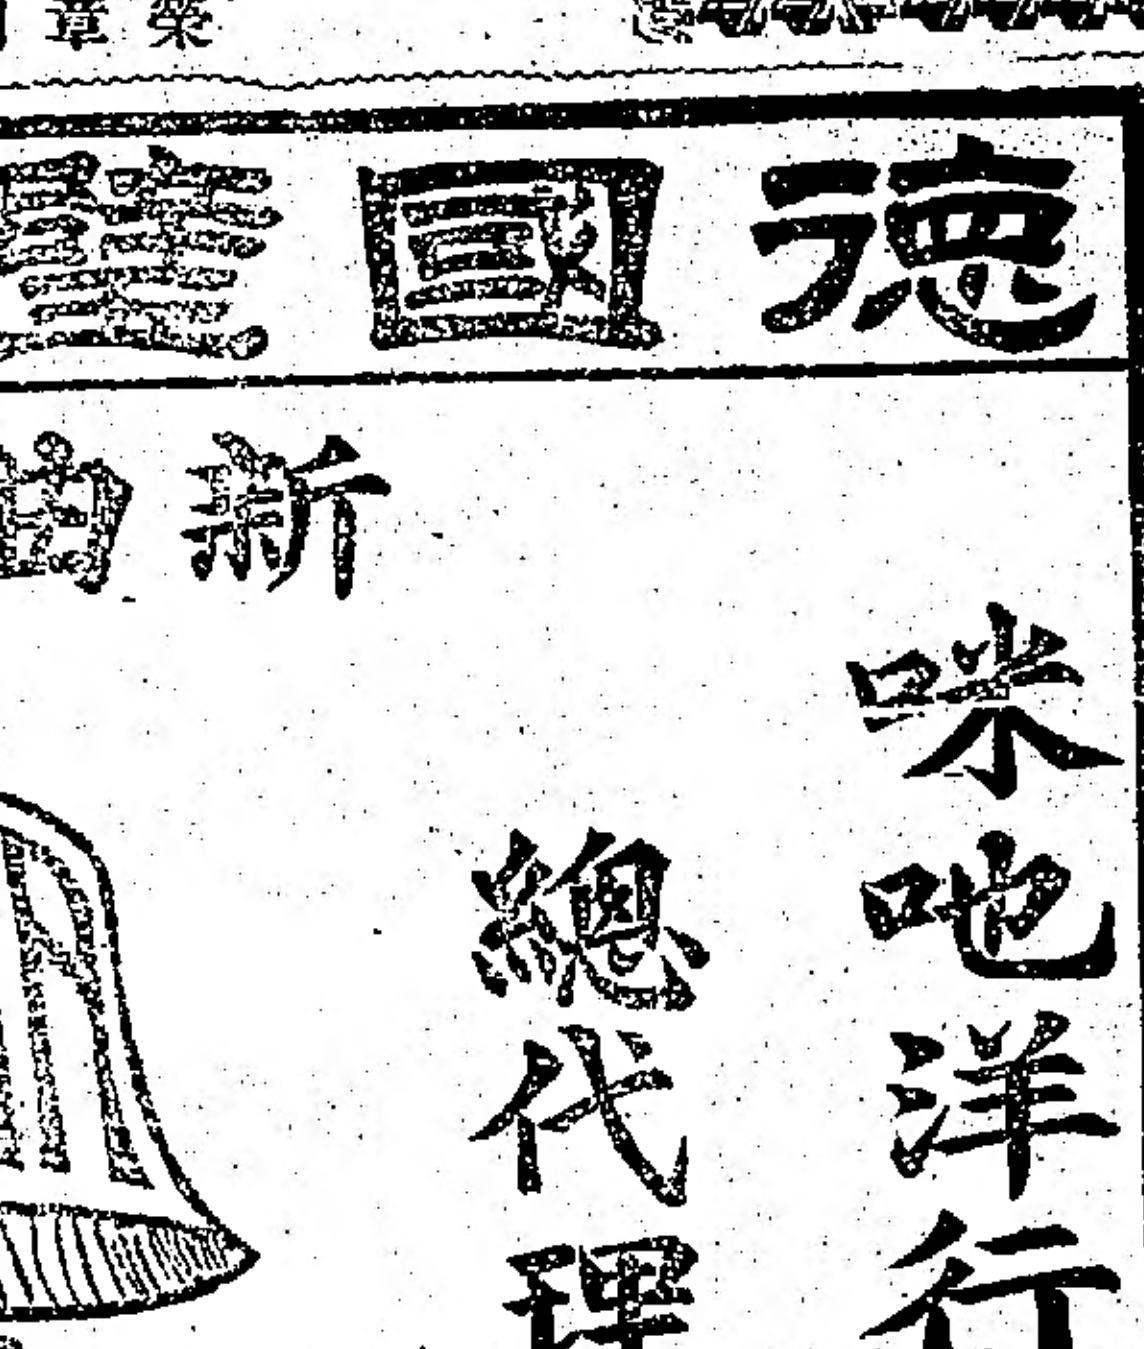 榮章
德國
新
咪吔洋行
總代理